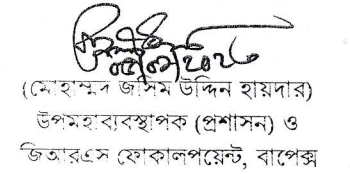 ০৫/০১/২০২৬
(মোহাম্মদ জসিম উদ্দিন হায়দার)
উপমহাব্যবস্থাপক (প্রশাসন) ও
জিআরএস ফোকালপয়েন্ট, বাপেক্স